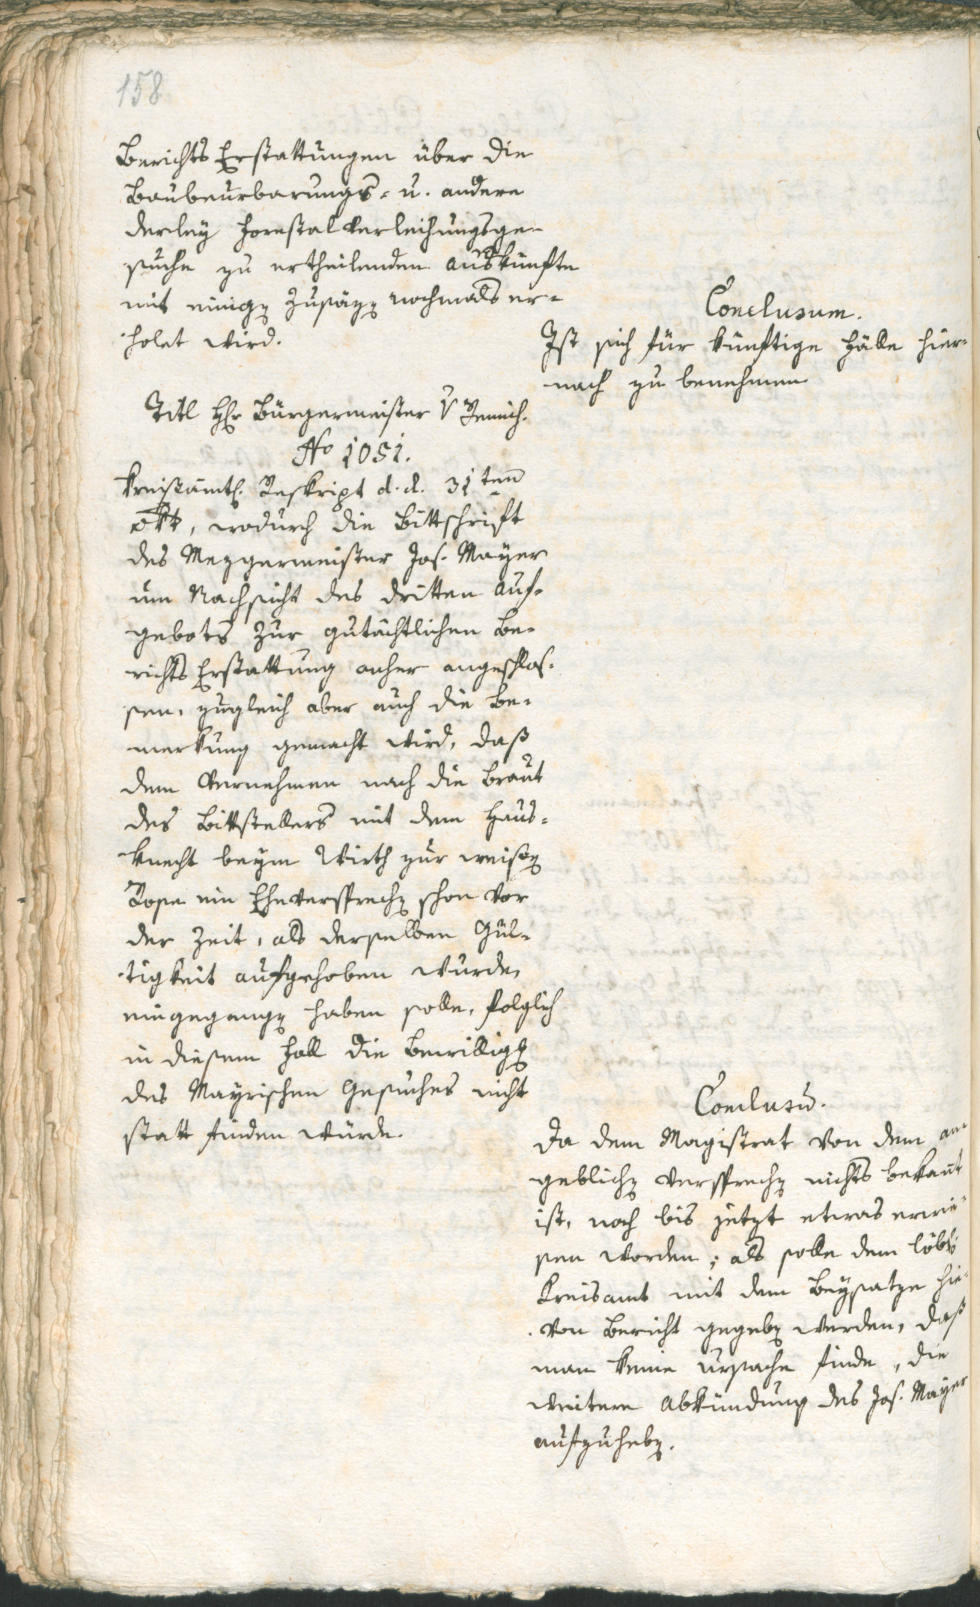 158
Berichts Erstattungen über die
Baubeurbarungs- u. andere
derley Forestalverleihungsge-
suche zu ertheilenden Auskünfte
mit einigen Zusäzen nochmals er-
holet wird.
Conclusum.
Ist sich für künftige Fälle hier-
nach zu benehmen
Titl Hr Bürgermeister v
No 1051.
Kreisämtl. Reskript d. d. 31ten
8br, wodurch die Bittschrift
des Mezgermeister Jos. Mayer
um Nachsicht des dritten Auf-
gebots zur gutächtlichen Be-
richts Erstattung anher angeschlos-
sen, zugleich aber auch die Be-
merkung gemacht wird, daß
dem Vernehmen nach die Braut
des Bittstellers mit dem Haus-
knecht beym Wirth zur weißen
Rose ein Ehe versprechen schon vor
der Zeit, als derselben Gül-
tigkeit aufgehoben wurde,
eingegangen haben solle, folglich
in diesem Fall die Bewilligg
des Mayrischen Gesuches nicht
statt finden würde.
Conclusu.
Da dem Magistrat von dem an-
geblichen Versprechen nichts bekannt
ist, noch bis jetzt etwas erwie-
sen worden; als solle dem löbl.
Kreisamt mit dem Beysatze hie-
von Bericht gegeben werden, daß
man keine Ursache finde, die
weitere Abkündung des Jos. Mayer
aufzuheben.